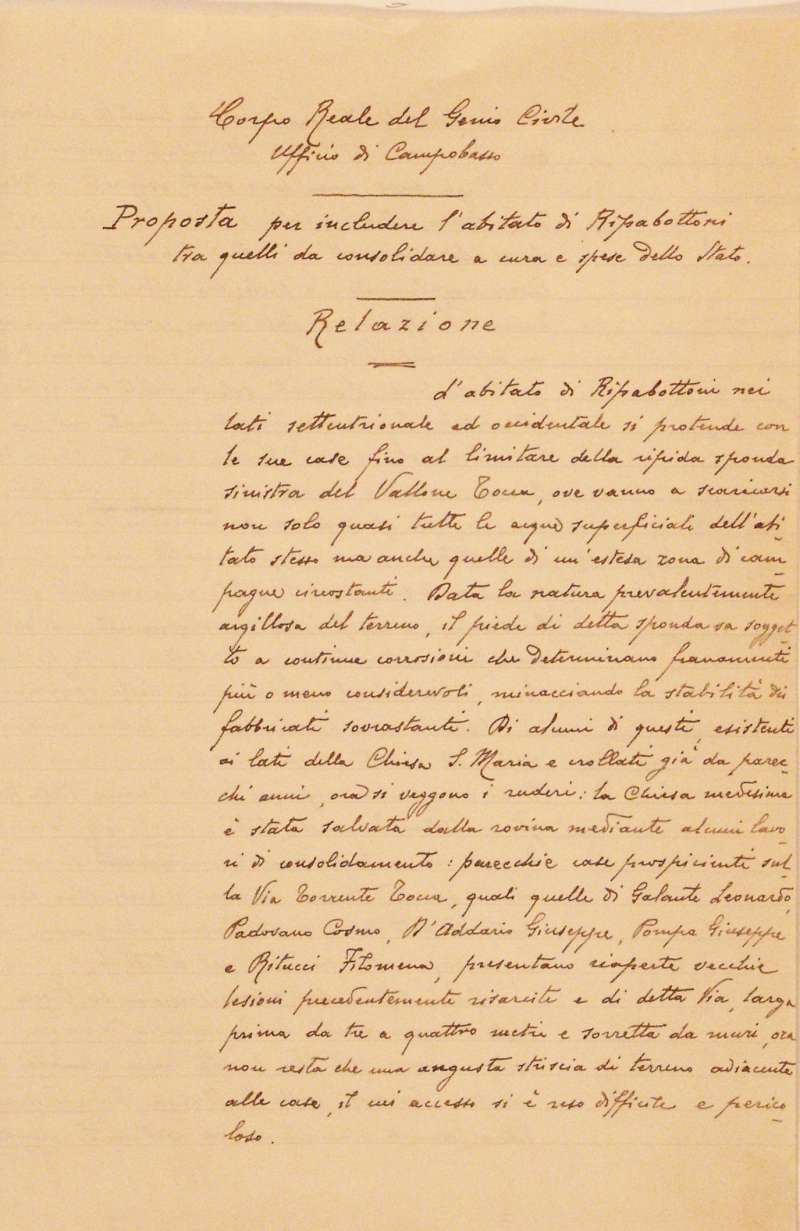 Corpo Reale del Genio Civile
Ufficio di Campobasso
Proposta per includere l'abitato di Ripabottoni
tra quelli da consolidare a cura e spese dello Stato.
Relazione
L'abitato di Ripabottoni nei
lati settentrionale ed occidentale si protende con
le sue case fino al limitare della ripida sponda
sinistra del Vallone Tocca, ove vanno a scaricarsi
non solo quasi tutte le acque superficiali dell'abi-
tato stesso ma anche quelle di un'estesa zona di cam-
pagne circostanti. Data la natura prevalentemente
argillosa del terreno, il piede di detta sponda va sogget-
to a continue corrosioni che determinano franamenti
più o meno considerevoli, minacciando la stabilità dei
fabbricati sovrastanti. Di alcuni di questi, esistenti
ai lati della Chiesa S. Maria e crollati già da parec-
chi anni, ora si veggono i ruderi: la Chiesa medesima
è stata salvata dalla rovina mediante alcuni lavo-
ri di consolidamento: parecchie case prospicienti sul-
la Via Torrente Tocca, quali quelle di Galante Leonardo,
Padovano Cosmo, D'Addario Giuseppe, Pompa Giuseppe
e Ritucci Filomena, presentano riaperte vecchie
lesioni precedentemente risarcite e di detta Via, larga
prima da tre a quattro metri e sorretta da muri, ora
non resta che una angusta striscia di terreno adiacente
alle case, il cui accesso si è reso difficile e perico-
loso.